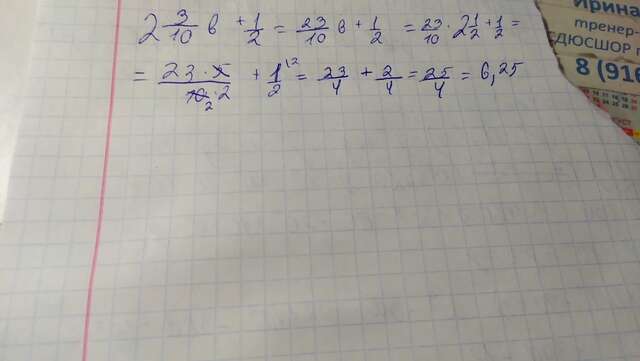 2 3/10 в + 1/2 = 23/10 в + 1/2 = 23/10 · 2 1/2 + 1/2 =
= 23 · 5/10 2 · 2 + 1/2 \2 = 23/4 + 2/4 = 25/4 = 6,25
Ирина
тренер-
СДЮСШОР
8 (916